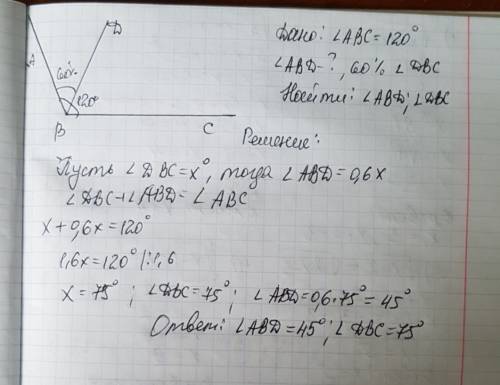 D
A
60%
120°
B
C
Дано: ∠ABC = 120°
∠ABD = ?, 60% ∠DBC
Найти: ∠ABD; ∠DBC
Решение:
Пусть ∠DBC = x°, тогда ∠ABD = 0,6x
∠DBC + ∠ABD = ∠ABC
x + 0,6x = 120°
1,6x = 120° |:1,6
x = 75° ; ∠DBC = 75° ; ∠ABD = 0,6·75° = 45°
Ответ: ∠ABD = 45°; ∠DBC = 75°